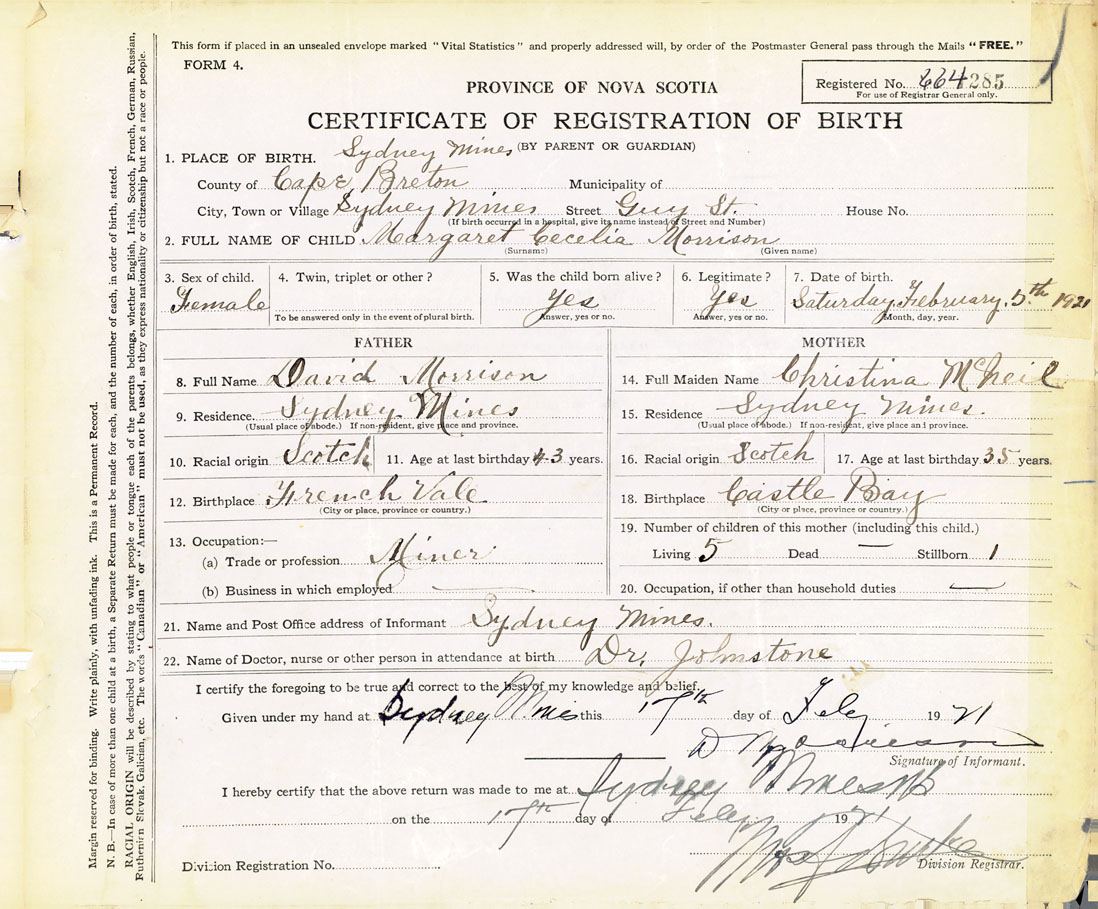 This form if placed in an unsealed envelope marked "Vital Statistics" and properly addressed will, by order of the Postmaster General pass through the Mails "FREE."
FORM 4.
Registered No. 664 285
For use of Registrar General only.
PROVINCE OF NOVA SCOTIA
CERTIFICATE OF REGISTRATION OF BIRTH
(BY PARENT OR GUARDIAN)
1. PLACE OF BIRTH. Sydney Mines
County of Cape Breton Municipality of
City, Town or Village Sydney Mines Street Guy St. House No.
(If birth occurred in a hospital, give its name instead of Street and Number)
2. FULL NAME OF CHILD Margaret Cecelia Morrison
(Surname) (Given name)
3. Sex of child. 4. Twin, triplet or other? 5. Was the child born alive? 6. Legitimate? 7. Date of birth.
Female Yes Yes Saturday, February, 5th 1921
To be answered only in the event of plural birth. Answer, yes or no. Answer, yes or no. Month, day, year.
FATHER
8. Full Name David Morrison
9. Residence. Sydney Mines
(Usual place of abode.) If non-resident, give place and province.
10. Racial origin Scotch 11. Age at last birthday 43 years.
12. Birthplace French Vale
(City or place, province or country.)
13. Occupation:—
(a) Trade or profession Miner
(b) Business in which employed —
MOTHER
14. Full Maiden Name Christina McNeil
15. Residence Sydney Mines.
(Usual place of abode.) If non-resident, give place and province.
16. Racial origin Scotch 17. Age at last birthday 35 years.
18. Birthplace Castle Bay
(City or place, province or country.)
19. Number of children of this mother (including this child.)
Living 5 Dead — Stillborn 1
20. Occupation, if other than household duties —
21. Name and Post Office address of Informant Sydney Mines.
22. Name of Doctor, nurse or other person in attendance at birth Dr. Johnstone
I certify the foregoing to be true and correct to the best of my knowledge and belief.
Given under my hand at Sydney Mines this 17th day of Feby 1921
D Morrison
Signature of Informant.
I hereby certify that the above return was made to me at Sydney Mines NS
on the 17th day of Feby 1921
Division Registration No. Division Registrar.
Margin reserved for binding. Write plainly, with unfading ink. This is a Permanent Record.
N. B.—In case of more than one child at a birth, a Separate Return must be made for each, and the number of each, in order of birth, stated.
RACIAL ORIGIN will be described by stating to what people or tongue each of the parents belongs, whether English, Irish, Scotch, French, German, Russian,
Ruthenian Slovak, Galician, etc. The words "Canadian" or "American" must not be used, as they express nationality or citizenship but not a race or people.